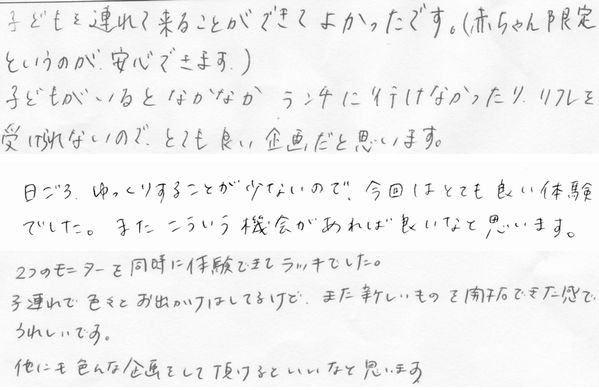 子どもを連れて来ることができてよかったです。(赤ちゃん限定
というのが安心できます。)
子どもがいるとなかなかランチに行けなかったり、リフレを
受けられないので、とても良い企画だと思います。
日ごろ、ゆっくりすることが少ないので、今回はとても良い体験
でした。またこういう機会があれば良いなと思います。
2つのモニターを同時に体験できてラッキーでした。
子連れで色々とお出かけはしてるけど、また新しいものを開拓できた感で
うれしいです。
他にも色んな企画をして頂けるといいなと思います